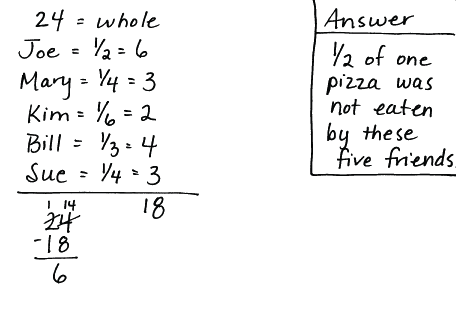 24 = whole
Joe = 1/2 = 6
Mary = 1/4 = 3
Kim = 1/6 = 2
Bill = 1/3 = 4
Sue = 1/4 = 3
18
1 14
24
-18
6
Answer
1/2 of one
pizza was
not eaten
by these
five friends.